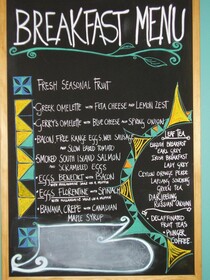 BREAKFAST MENU
FRESH SEASONAL FRUIT
GREEK OMELETTE WITH FETA CHEESE AND LEMON ZEST
GERRY'S OMELETTE WITH BLUE CHEESE AND SPRING ONION
BACON, FREE RANGE EGGS, WEE SAUSAGE
AND SLOW BAKED TOMATO
SMOKED SOUTH ISLAND SALMON
SCRAMBLED EGGS
EGGS BENEDICT WITH BACON
WITH HOLLANDAISE SAUCE ON A MUFFIN
EGGS FLORENTINE WITH SPINACH
WITH HOLLANDAISE SAUCE ON A MUFFIN
BANANA CREPE WITH CANADIAN
MAPLE SYRUP
LEAF TEA
ENGLISH BREAKFAST
EARL GREY
IRISH BREAKFAST
LADY GREY
CEYLON ORANGE PEKOE
LAPSANG SOUCHONG
GREEN TEA
DARJEELING
RUSSIAN
DECAFFINATED
FRUIT TEAS
PLUNGER
COFFEE